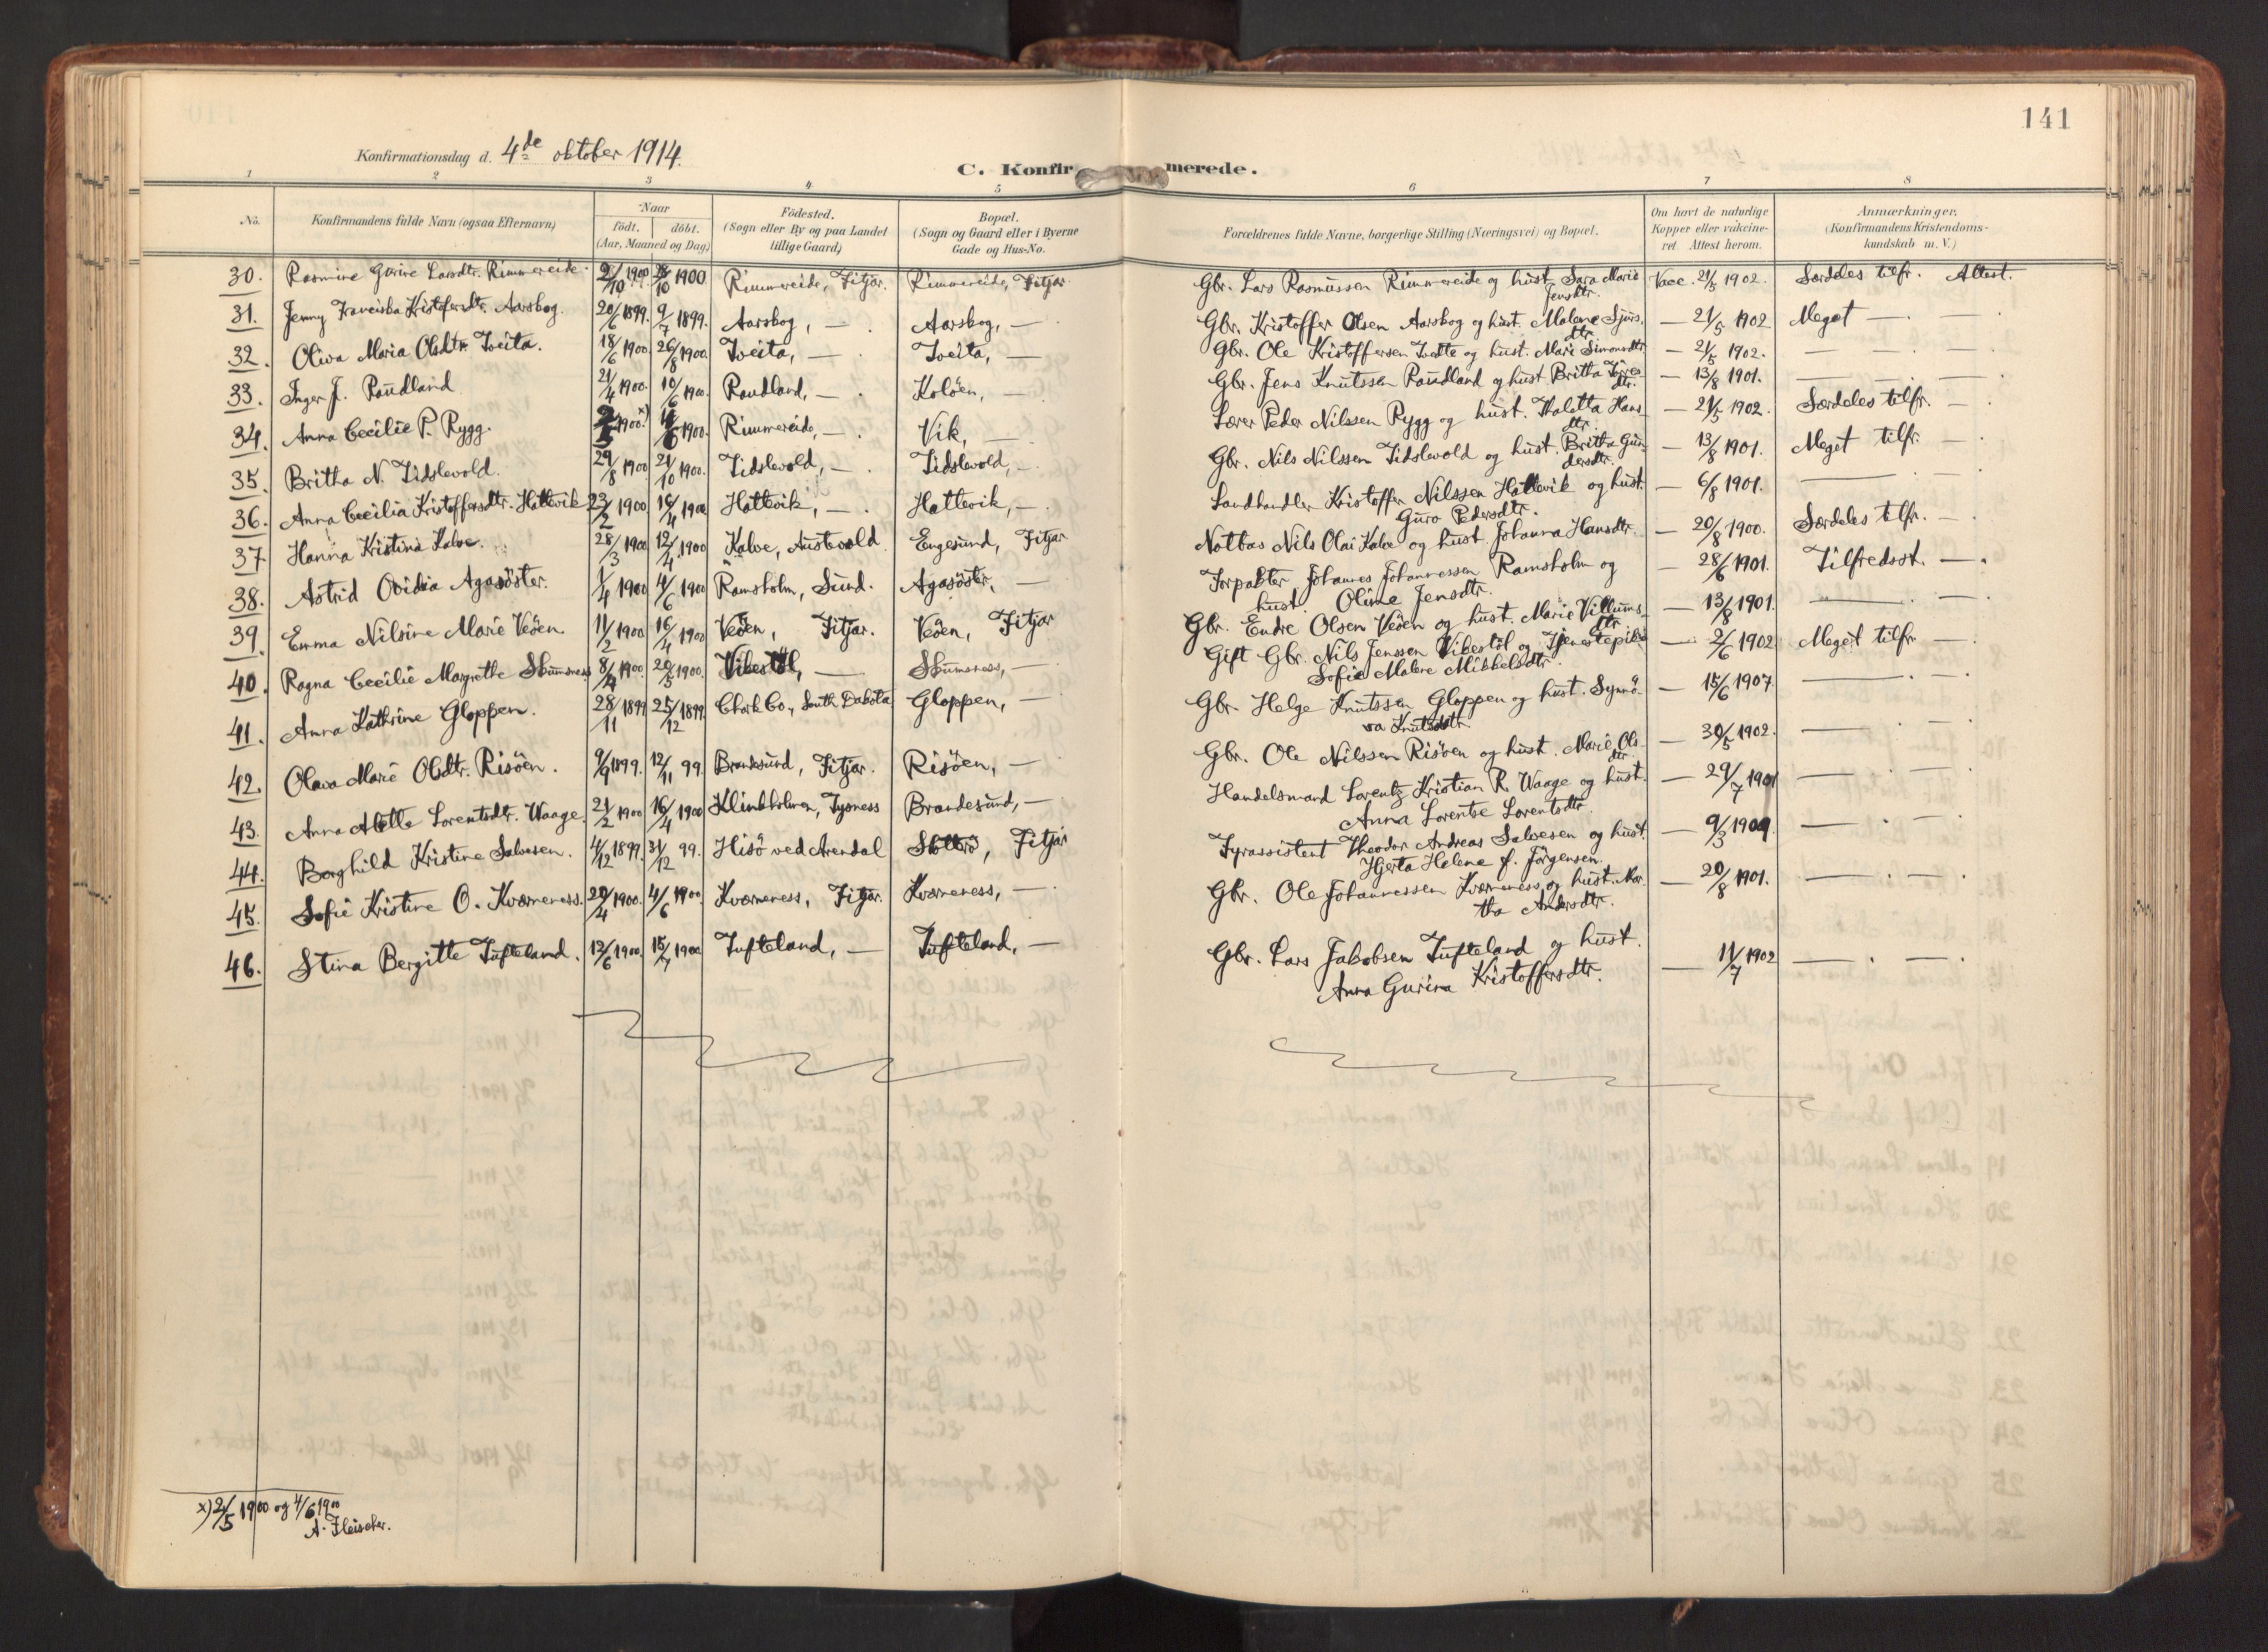 141
Konfirmationsdag d. 4de oktober 1914.
C. Konfirmerede.
1 2 3 4 5 6 7 8
No. Konfirmandens fulde Navn (ogsaa Efternavn) Naar født. døbt. (Aar, Maaned og Dag) Fødested. (Sogn eller By og paa Landet tillige Gaard) Bopæl. (Sogn og Gaard eller i Byerne Gade og Hus-No. Forældrenes fulde Navne, borgerlige Stilling (Næringsvei) og Bopæl. Om havt de naturlige Kopper eller vakcineret. Attest herom. Anmærkninger. (Konfirmandens Kristendomskundskab m. V.)
30. Rasmine Gurine Larsdtr. Rimmereide. 2/10 1900 28/10 1900 Rimmereide, Fitjar. Rimmereide, Fitjar Gbr. Lars Rasmussen Rimmereide og hust. Sara Marie Jensdtr. Vacc. 21/5 1902. Særdeles tilfr. Attest.
31. Jenny Franciska Kristofersdtr. Aarskog. 20/6 1899. 9/7 1899. Aarskog, — . Aarskog, — Gbr. Kristoffer Olsen Aarskog og hust. Malene Sjurs. dtr. — 21/5 1902 Meget — . —
32. Oliva Maria Olsdtr. Tveita. 18/6 1900. 26/8 1900. Tveita, — . Tveita, — Gbr. Ole Kristoffersen Tvedte og hust. Mari Simonsdtr — 21/5 1902. — . —
33. Inger J. Raudland 21/4 1900. 10/6 1900. Raudland, — . Koløen, — Gbr. Jens Knutssen Raudland og hust Britta Torres- dtr. — 13/8 1901. — . —
34. Anna Cecilie P. Rygg. 2/5 1900. x) 4/6 1900. Rimmereide, — . Vik, — Lærer Peder Nilssen Rygg og hust. Haletta Hans dtr. — 21/5 1902. Særdeles tilfr. — .
35. Britha N. Tidslevold. 29/8 1900 21/10 1900. Tidslevold, — . Tidslevold, — Gbr. Nils Nilssen Tidslevold og hust. Britha Gun- dersdtr. — 13/8 1901. Meget tilfr. — .
36. Anna Cecilia Kristoffersdtr. Hattevik 23/2 1900 16/4 1900 Hattevik, — . Hattevik, — . Landhandler Kristoffer Nilssen Hattevik og hust. Guro Pedersdtr. — 6/8 1901. — . —
37. Hanna Kristina Kalve. 28/3 1900 12/4 1900 Kalve, Austevold Engesund, Fitjar Notbas Nils Olai Kalve og hust. Johanna Hansdtr. — 20/8 1900. Særdeles tilfr. — .
38. Astrid Ovidia Agasøster. 1/4 1900 4/6 1900 Ramsholm, Sund. Agasøster, — Forpakter Johannes Johannessen Ramsholm og hust. Oline Jensdtr. — 28/6 1901. Tilfredsst. — .
39. Emma Nilsine Marie Veøen. 11/2 1900 16/4 1900 Veøen, Fitjar. Veøen, Fitjar Gbr. Endre Olsen Veøen og hust. Marie Villums- dtr. — 13/8 1901. — . —
40. Ragna Cecilie Margrethe Skumsness 8/4 1900. 20/5 1900. Vikestøl, — Skumsness, — Gift Gbr. Nils Jenssen Vikestøl og Tjenestepike Sofie Malene Mikkelsdtr. — 2/6 1902 Meget tilfr — .
41. Anna Kathrine Gloppen. 28/11 1899 25/12 1899. Clark Co., South Dakota Gloppen, — Gbr. Helge Knutssen Gloppen og hust. Synnø- va Knutsdtr. — 15/6 1907. — . — .
42. Olava Marie Olsdtr. Risøen. 9/9 1899. 12/11 99. Brandesund, Fitjar. Risøen, — Gbr. Ole Nilssen Risøen og hust. Marie Ols- dtr. — 30/5 1902. — . — .
43. Anna Alette Lorentsdtr. Waage. 21/2 1900 16/4 1900 Klinkholmen, Tysness Brandesund, — Handelsmand Lorentz Kristian R. Waage og hust. Anna Lorentse Lorentsdtr. — 29/7 1901 — . — .
44. Borghild Kristine Salvesen. 4/12 1899. 31/12 99. Hisø ved Arendal Slotterø, Fitjar Fyrassistent Theodor Andreas Salvesen og hust. Hjerta Helene f. Jørgensen. — 9/3 1909. — . — .
45. Sofie Kristine O. Kværneness. 29/4 1900. 4/6 1900. Kværneness, Fitjar. Kværneness, — . Gbr. Ole Johannessen Kværneness og hust. Mar- tha Andersdtr. — 20/8 1901. — . — .
46. Stina Bergitte Tufteland. 12/6 1900. 15/7 1900 Tufteland, — Tufteland, — Gbr. Lars Jakobsen Tufteland og hust. Anna Gurina Kristoffersdtr. — 11/7 1902 — . — .
x) 2/5 1900 og 4/6 1900
A. Fleischer.